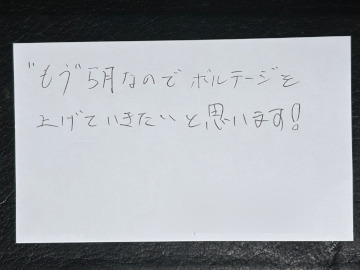 "もう"5月なのでボルテージを
上げていきたいと思います!